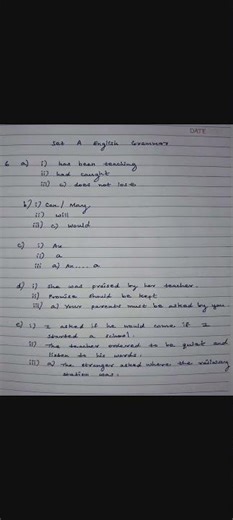 DATE
Set A English Grammar
6 a) i) has been teaching
ii) had caught
iii) a) does not lose
b) i) Can / May
ii) will
iii) c) would
c) i) An
ii) a
iii a) An.... a
d) i) She was praised by her teacher.
ii) Promise should be kept
iii) a) Your parents must be asked by you.
e) i) I asked if he would come if I
started a school.
ii) The teacher ordered to be quiet and
listen to his words.
iii) a) The stranger asked where the railway
station was.